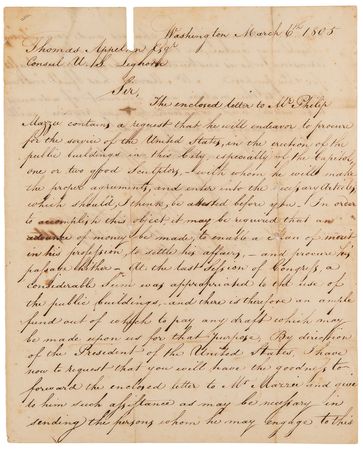 Washington March 6th 1805
Thomas Appleton Esqr
Consul U.S. Leghorn
Sir,
The enclosed letter to Mr. Philip
Mazzei contains a request that he will endeavor to procure
for the service of the United States, in the erection of the
public buildings in this City, especially of the Capitol,
one or two good Sculptors, with whom he will make
the proper agreements, and enter into the necessary Articles,
which should, I think, be attested before you. In order
to accomplish this object it may be required that an
advance of money be made, to enable a man of merit
in his profession, to settle his affairs, and procure his
passage hither. At the last session of Congress, a
considerable Sum was appropriated to the use of
the public buildings, and there is therefore an ample
fund out of which to pay any draft which may
be made upon us for that purpose. By direction
of the President of the United States, I have
now to request that you will have the goodness to
forward the enclosed letter to Mr. Mazzei and give
to him such assistance as may be necessary in
sending the persons whom he may engage to this